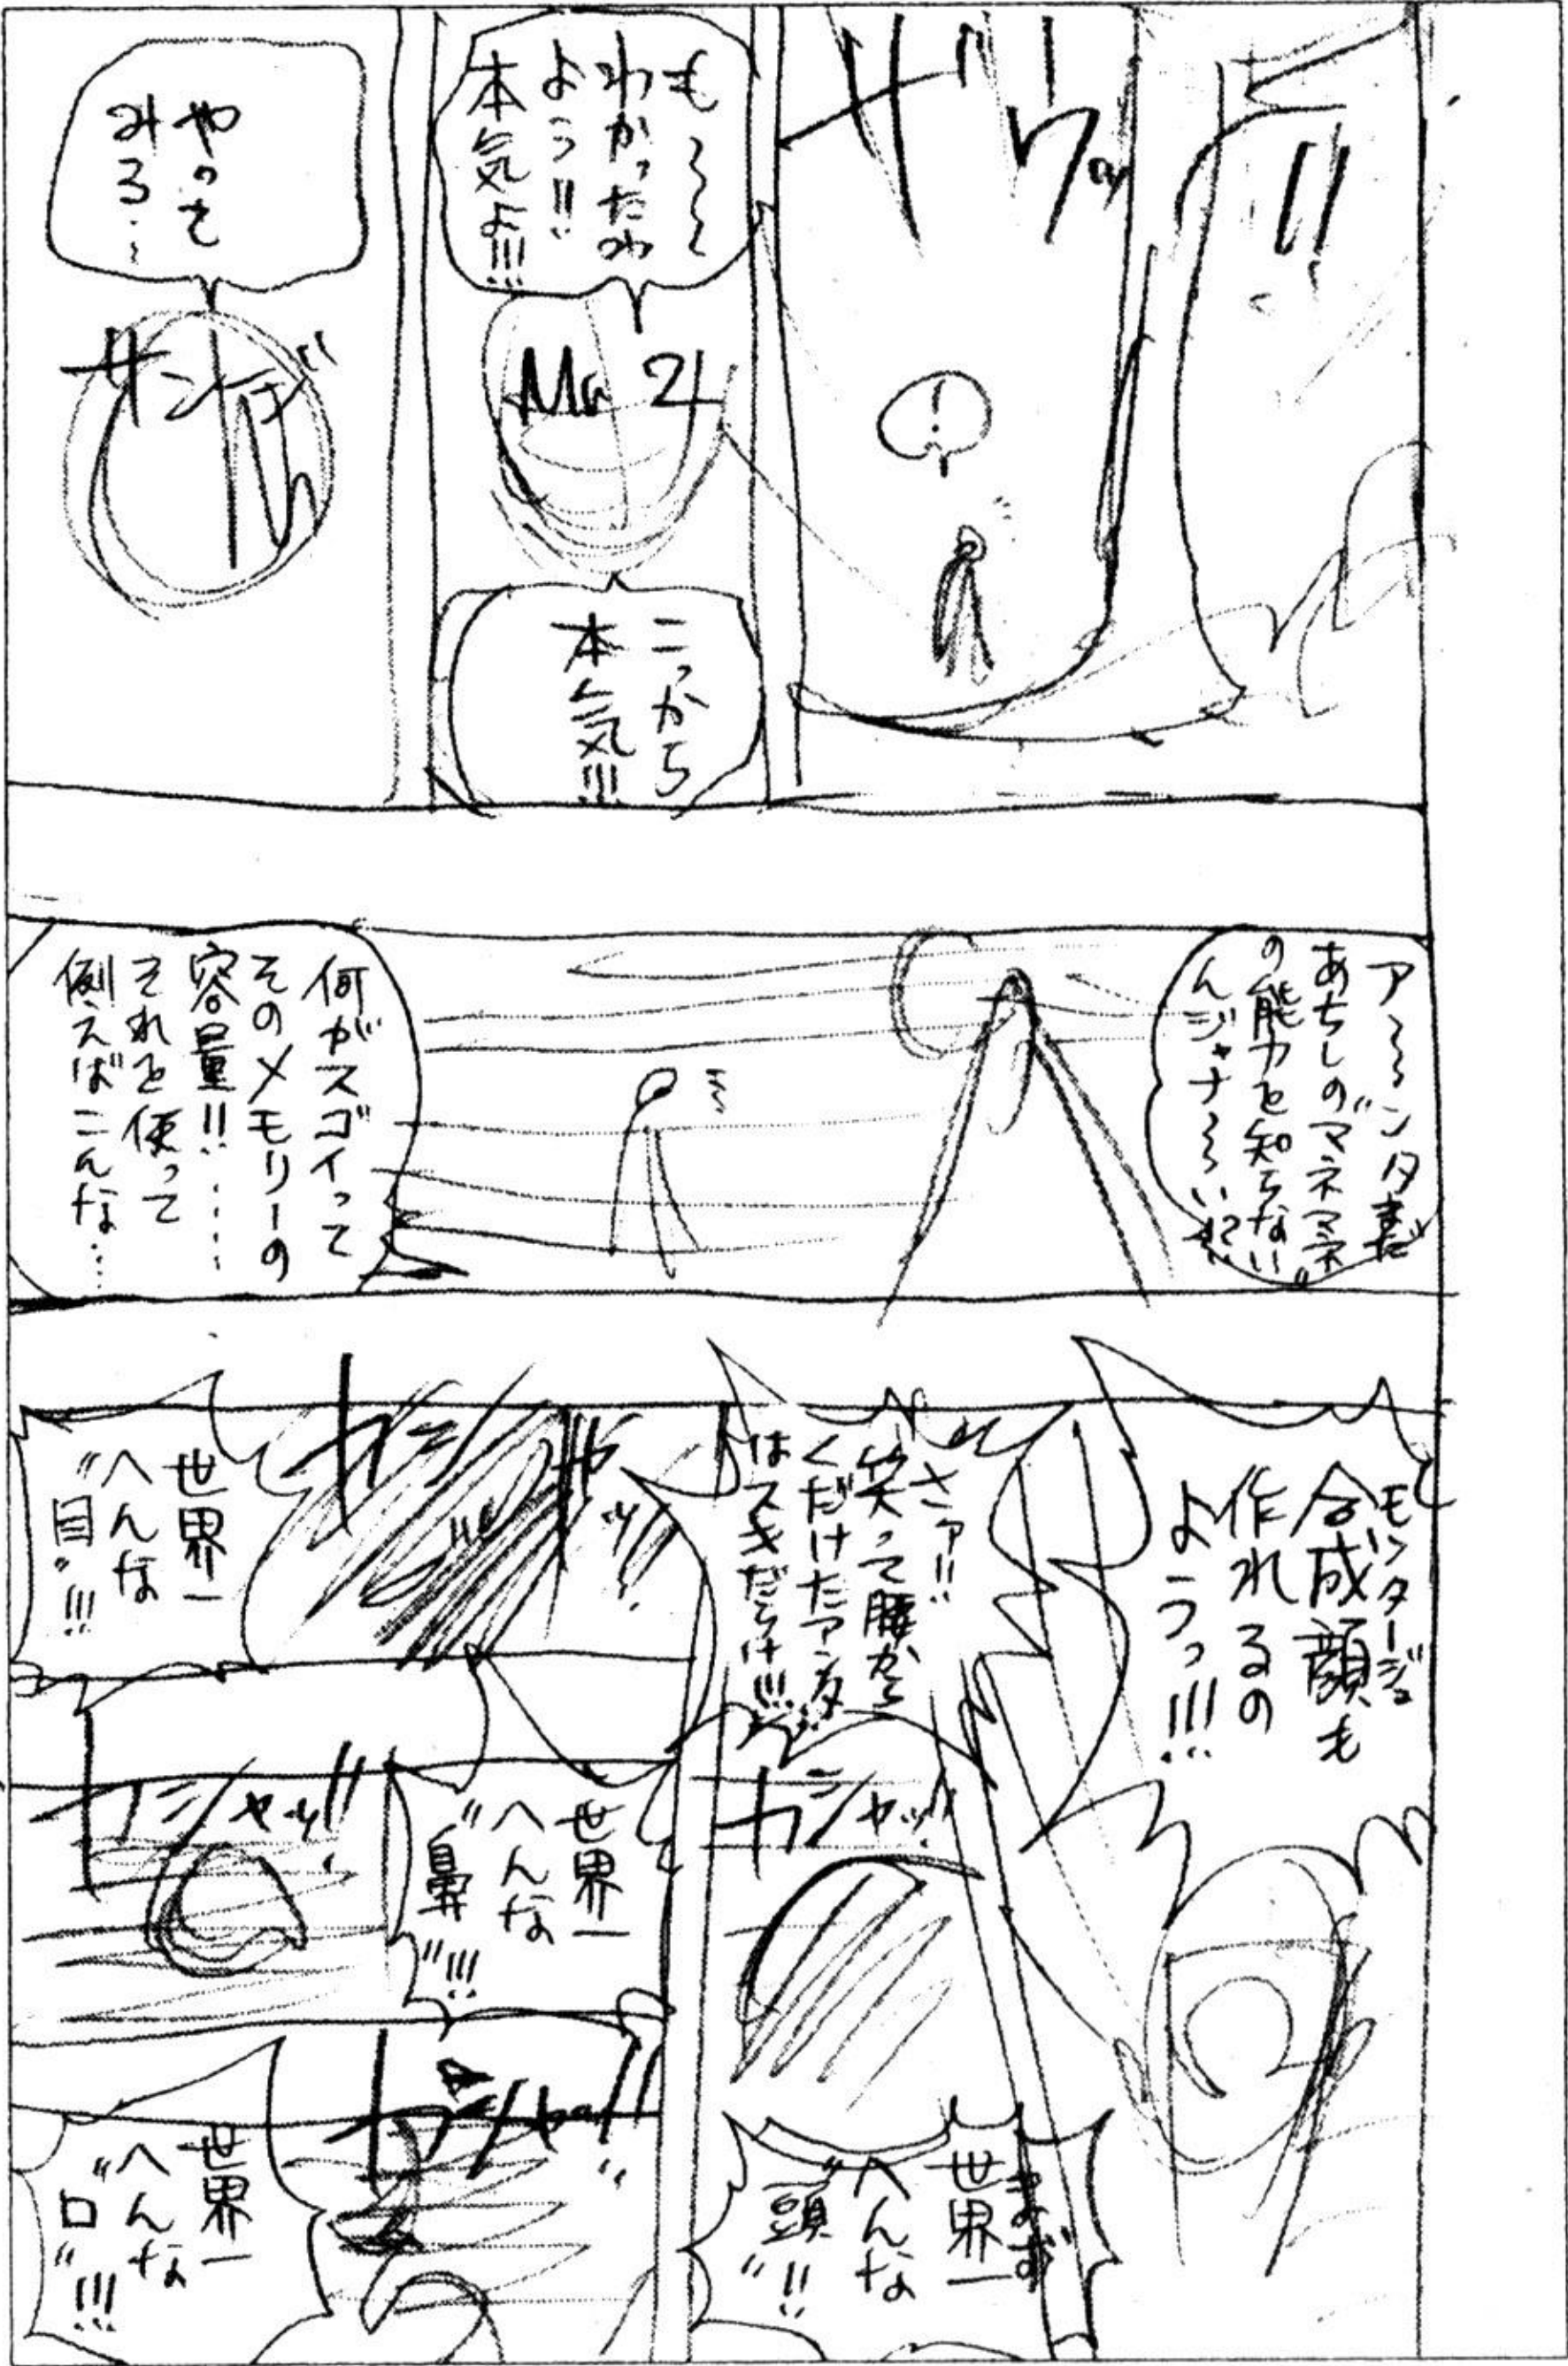 !!
ザワッ
!
も〜〜
わかったわ
よう!!
本気よ!!!
Mr 2
こっから
本気!!!
やって
みろ…
サンジ
ア〜〜ンタまだ
あちしのマネマネ
の能力を知らない
んジャナ〜〜い
何がスゴイって
そのメモリーの
容量!!……
それを使って
例えばこんな……
モンタージュ
合成顔も
作れるの
ようっ!!!
さァ!!
笑って腰から
くだけたアンタ
はスキだらけ!!!
まず
世界一
へんな
“頭”!!
カシャッ!!
カシャッ!!
世界一
へんな
“目”!!!
世界一
へんな
“鼻”!!!
カシャッ!!
カシャッ!!
世界一
へんな
“口”!!!